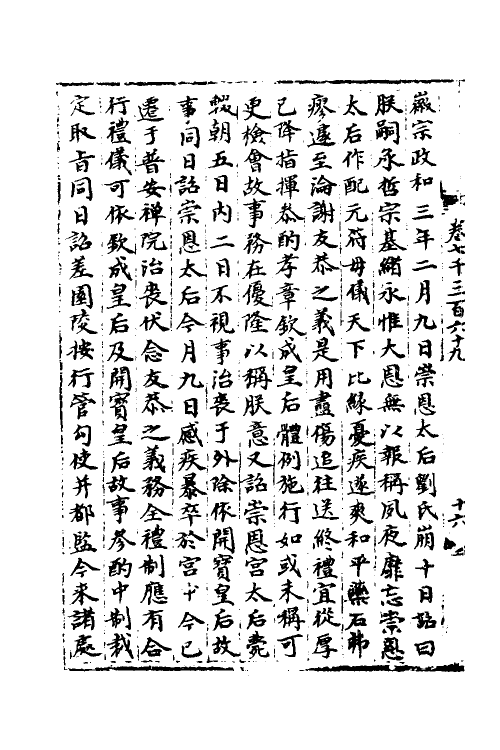 徽宗政和三年二月九日崇恩太后劉氏崩十日詔曰
朕嗣承哲宗基緒永惟大恩無以報稱夙夜靡忘崇恩
太后作配元符母儀天下比緣憂疾遂爽和平藥石弗
瘳遽至淪謝友恭之義是用盡傷追往送終禮宜從厚
已降指揮恭酌孝章欽成皇后體例施行如或未稱可
更檢會故事務在優隆以稱朕意又詔崇恩宮太后薨
輟朝五日内二日不視事治喪于外除依開寶皇后故
事同日詔崇恩太后今月九日感疾暴卒於宮十今已
遷于普安禪院治喪伏念友恭之義務全禮制應有合
行禮儀可依欽成皇后及開寶皇后故事參酌中制裁
定取旨同日詔差園陵按行管勾使并都監今來諸處
卷七千三百六十九
十六